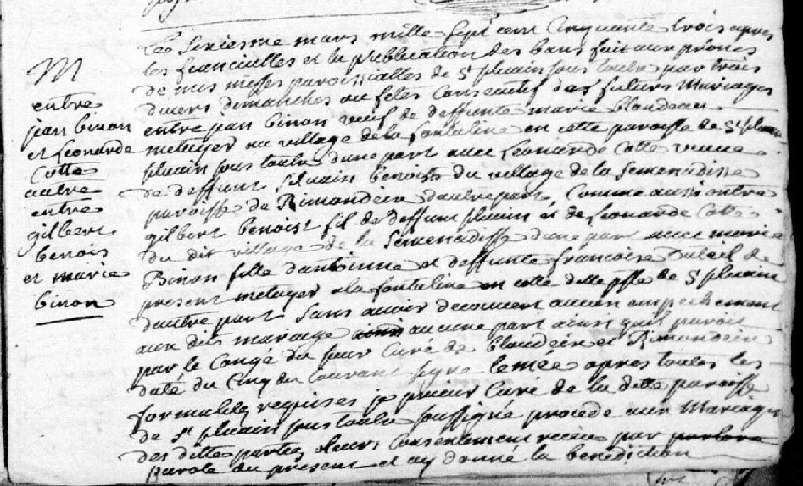 M
entre
jean binon
et Leonarde
Cotte
autre
entre
gilbert
benois
et marie
binon
Le Sixienne mars mille Sept cent Cinquante trois apres
les fiancailles et la publication des bans fait aux prones
de nos messes paroissialles de St pluain sous toulx par trois
divers dimanches ou fetes Consecutif des futurs Mariages
entre jean binon veuf de deffunte marie
metayer au village de la fontaline en cette paroisse de St pluain
pluain sous toulx d'une part avec Leonarde Cotte veuve
de deffunt Silvain benoist du village de la Semenadisse
paroisse de Rimondeix d'autre part, Comme aussi entre
gilbert benoist fil de deffunt pluain et de Leonarde Cotte
du dit village de la Semenadisse d'une part avec marie
Binon fille d'antienne et deffunte francoise de
present metayer a la fontaline en cette ditte psse de St pluain
d'autre part Sans avoir decouvert aucun empechement
aux dits mariage aucune part ainsi qu'il paroit
par le Congé du sieur Curé de blaudeix et Rimondeix
daté du Cinq du Courant signé Lemée apres toutes les
formalités requises je prieur Curé de la ditte paroisse
de St pluain sous toulx soussigné procede aux Mariages
des dittes parties leurs Consentement recue par
parole de présent et ay donné la bénédiction